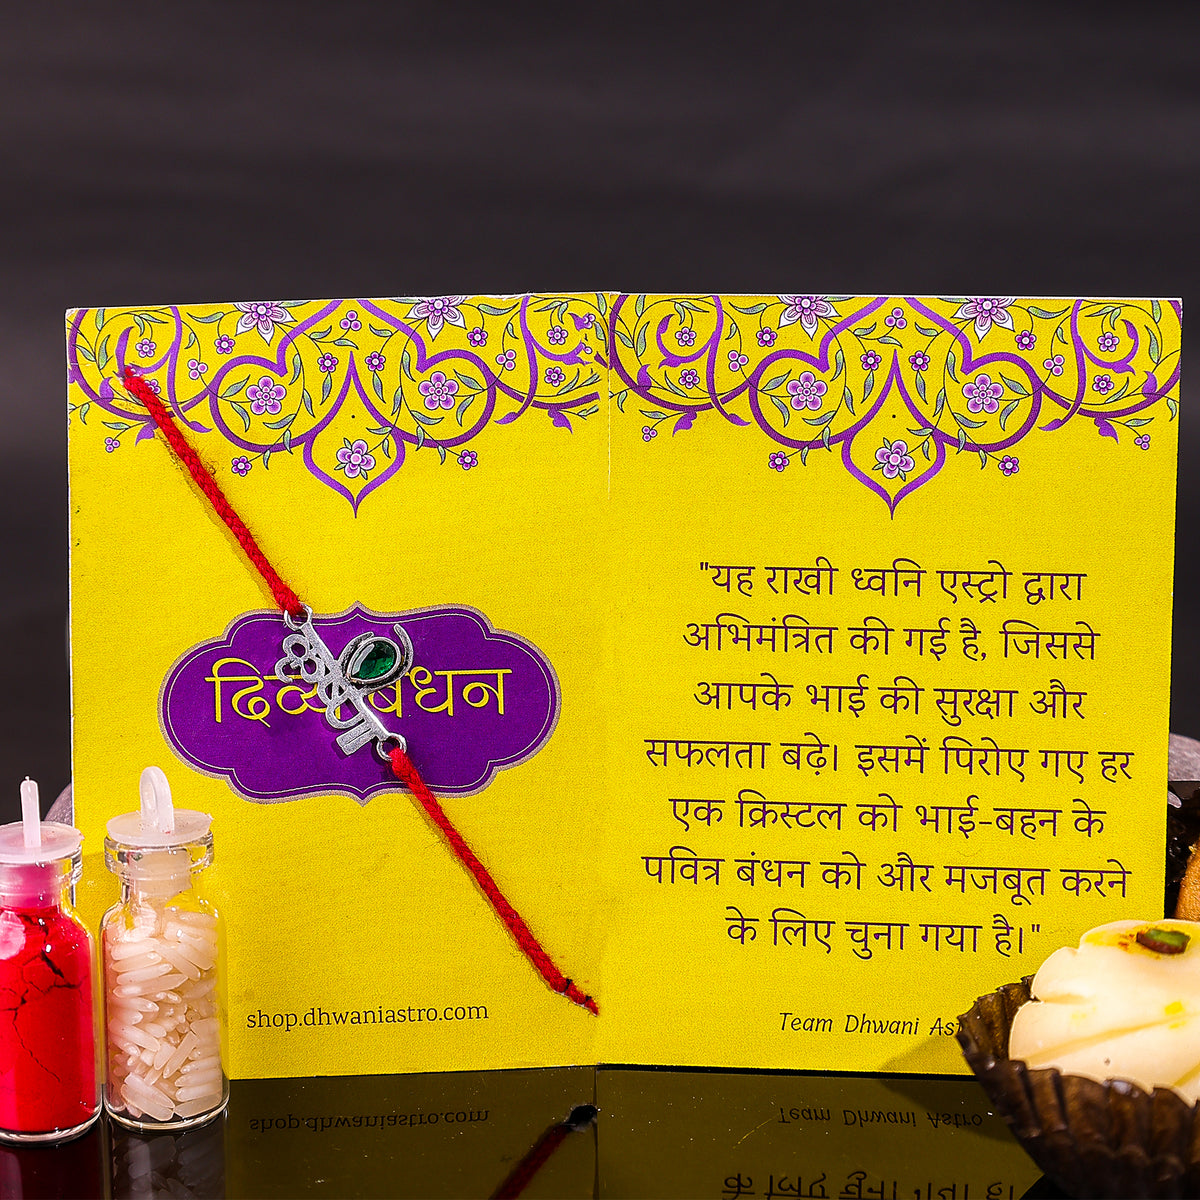 दिव्य बंधन
shop.dhwaniastro.com
"यह राखी ध्वनि एस्ट्रो द्वारा
अभिमंत्रित की गई है, जिससे
आपके भाई की सुरक्षा और
सफलता बढ़े। इसमें पिरोए गए हर
एक क्रिस्टल को भाई-बहन के
पवित्र बंधन को और मजबूत करने
के लिए चुना गया है।"
Team Dhwani